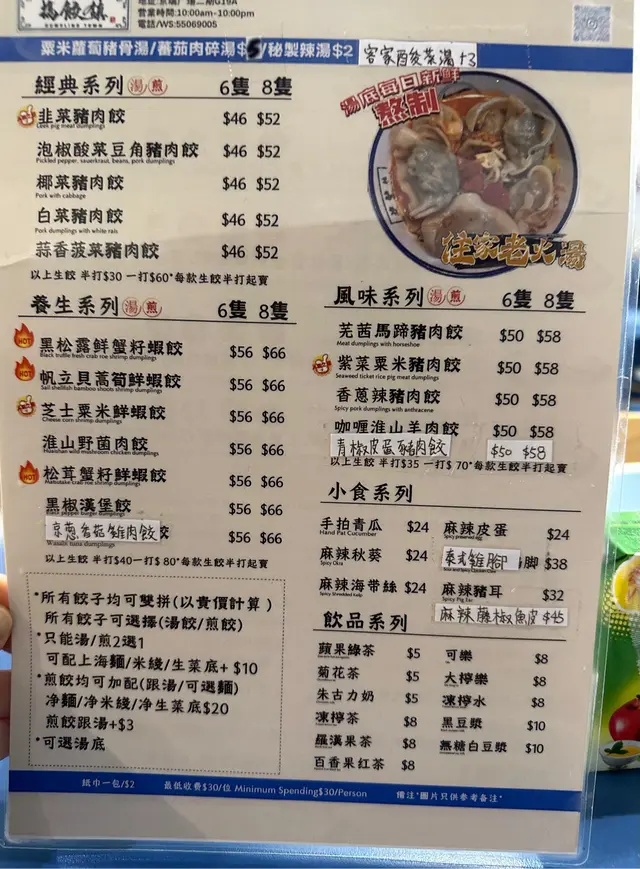 營業時間:10:00am-10:00pm
電話/WS:55069005
粟米蘿蔔豬骨湯/蕃茄肉碎湯$5/秘製辣湯$2 客家酸菜湯+3
經典系列 湯 煎 6隻 8隻
韭菜豬肉餃 $46 $52
Leek pig meat dumplings
泡椒酸菜豆角豬肉餃 $46 $52
Pickled pepper, sauerkraut, beans, pork dumplings
椰菜豬肉餃 $46 $52
Pork with cabbage
白菜豬肉餃 $46 $52
蒜香菠菜豬肉餃 $46 $52
以上生餃 半打$30 一打$60*每款生餃半打起賣
湯底每日新鮮
熬制
住家老火湯
養生系列 湯 煎 6隻 8隻
HOT 黑松露鮮蟹籽蝦餃 $56 $66
Black truffle fresh crab roe shrimp dumplings
HOT 帆立貝萵筍鮮蝦餃 $56 $66
芝士粟米鮮蝦餃 $56 $66
Cheese corn shrimp dumplings
淮山野菌肉餃 $56 $66
Huaishan wild mushroom chicken dumplings
HOT 松茸蟹籽鮮蝦餃 $56 $66
黑椒漢堡餃 $56 $66
京蔥香菇雞肉餃 $56 $66
以上生餃 半打$40一打$80*每款生餃半打起賣
風味系列 湯 煎 6隻 8隻
芫茜馬蹄豬肉餃 $50 $58
Meat dumplings with horseshoe
紫菜粟米豬肉餃 $50 $58
Seaweed ticket rice pig meat dumplings
香蔥辣豬肉餃 $50 $58
Spicy pork dumplings with anthracene
咖喱淮山羊肉餃 $50 $58
青椒皮蛋豬肉餃 $50 $58
以上生餃 半打$35 一打$70*每款生餃半打起賣
小食系列
手拍青瓜 $24 麻辣皮蛋 $24
Hand Pat Cucumber
麻辣秋葵 $24 泰式雞腳 腳 $38
Spicy Okra
麻辣海帶絲 $24 麻辣豬耳 $32
Spicy Shredded Kelp
麻辣藤椒魚皮 $45
飲品系列
蘋果綠茶 $5 可樂 $8
菊花茶 $5 大檸樂 $8
朱古力奶 $5 凍檸水 $8
凍檸茶 $8 黑豆漿 $10
羅漢果茶 $8 無糖白豆漿 $10
百香果紅茶 $8
*所有餃子均可雙拼(以貴價計算)
所有餃子可選擇(湯餃/煎餃)
*只能湯/煎2選1
可配上海麵/米綫/生菜底+$10
*煎餃均可加配(跟湯/可選麵)
净麵/净米綫/净生菜底$20
煎餃跟湯+$3
*可選湯底
紙巾一包/$2 最低收費$30/位 Minimum Spending$30/Person 備注*圖片只供參考备注*